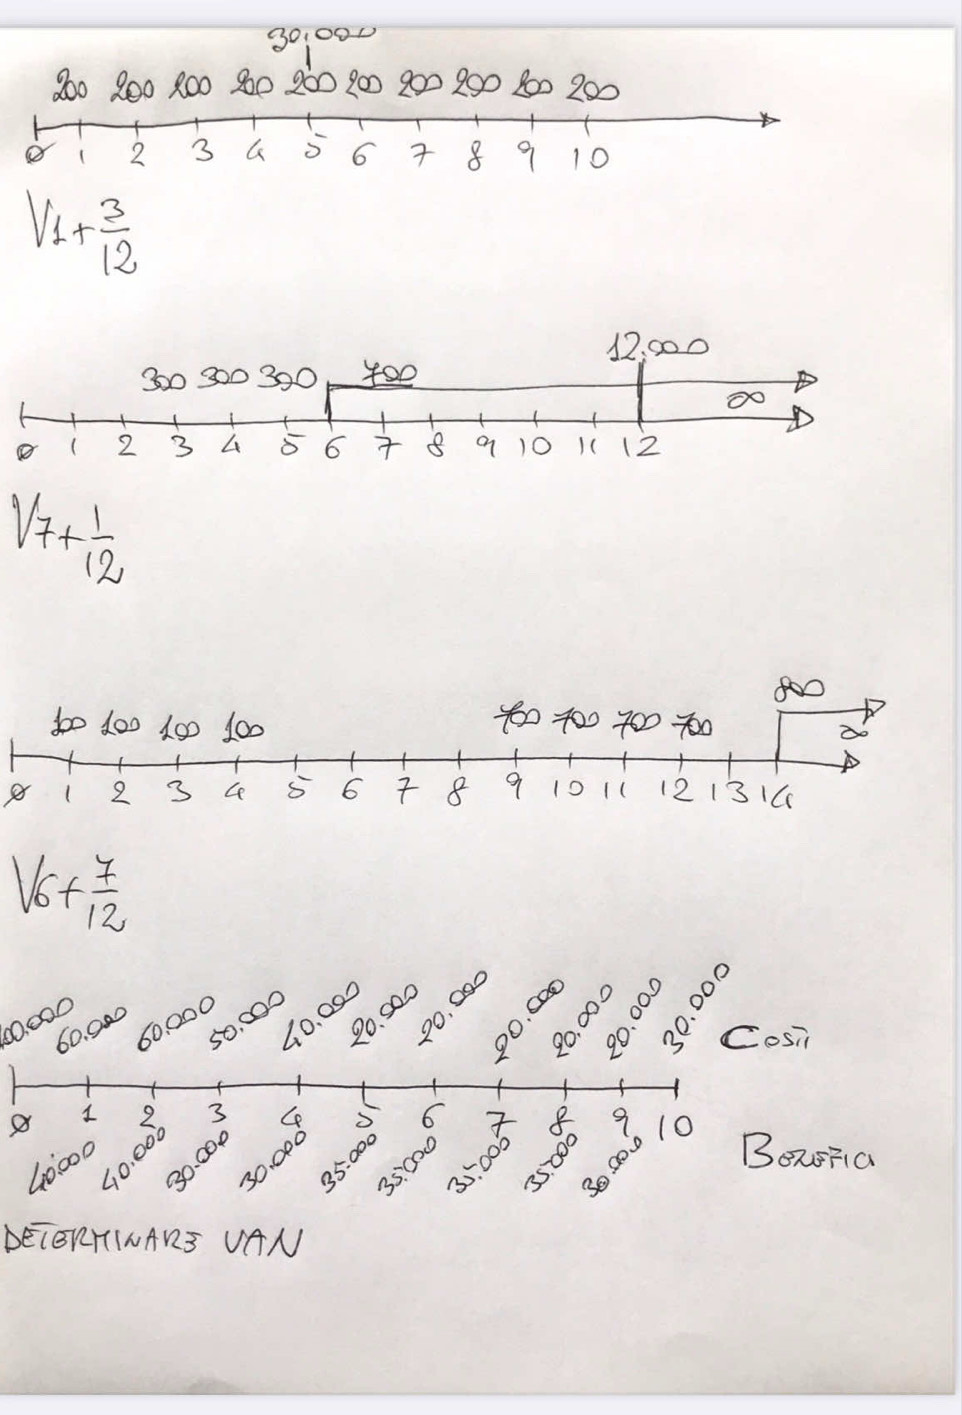 30.000
200 200 200 200 200 200 200 200 200 200
0 1 2 3 4 5 6 7 8 9 10
V1+3/12
12.000
300 300 300 700
∞
0 1 2 3 4 5 6 7 8 9 10 11 12
V7+1/12
800
100 100 100 100 700 700 700 700
∞
0 1 2 3 4 5 6 7 8 9 10 11 12 13 14
V6+7/12
60.000 60.000 50.000 40.000 20.000 20.000 20.000 20.000 20.000 30.000 COSTI
0 1 2 3 4 5 6 7 8 9 10
40.000 40.000 30.000 30.000 35.000 35.000 35.000 35.000 30.000 BENEFICI
DETERMINARE VAN